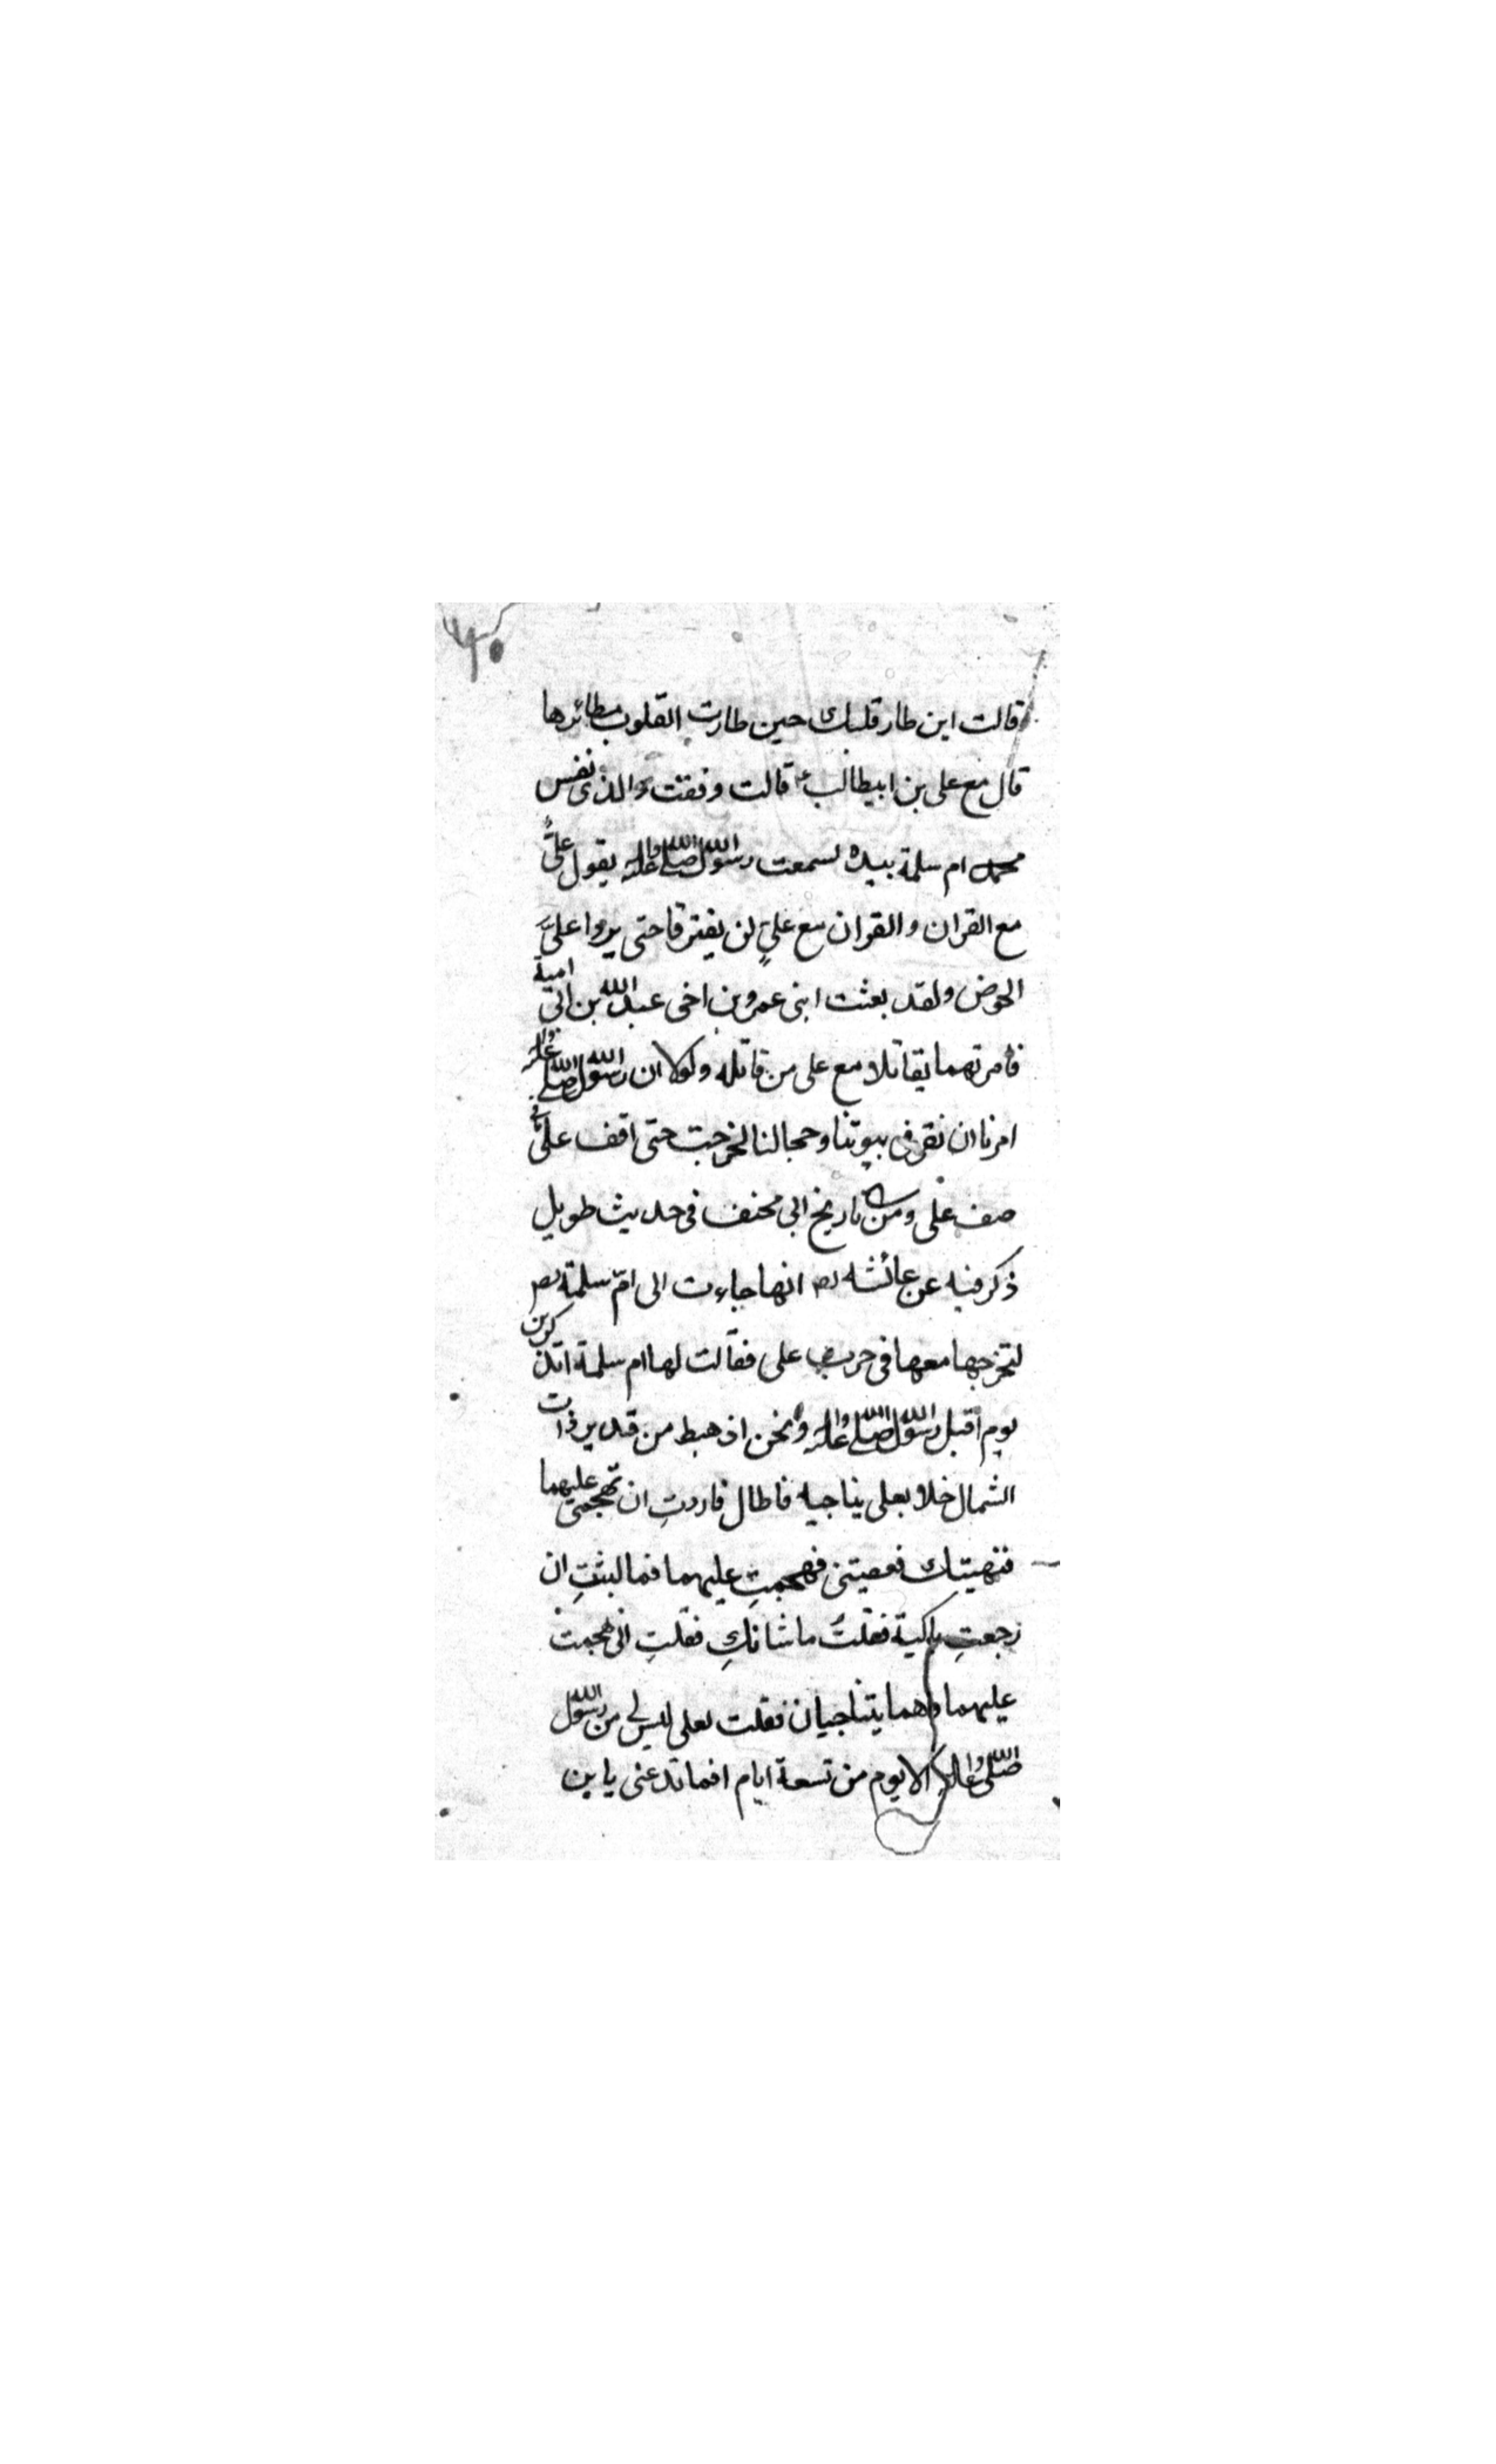 قالت اين طار قلبك حين طارت القلوب مطائرها
قال مع على بن ابيطالبؑ قالت وفقت والذى نفس
محمد ام سلمة بيده لسمعت رسول الله صلى الله عليه واله يقول علىٌّ
مع القران والقران مع علىٍ لن يفترقا حتى يردوا علىَّ
الحوض ولقد بعثت ابنى عمرو بن اخى عبد الله بن ابى امية
فأمرتهما يقاتلا مع على من قاتله ولولا ان رسول الله صلى الله عليه واله
امرنا ان نقر فى بيوتنا وحجالنا لخرجت حتى اقف على فى
صف على ومن تاريخ ابى مخنف فى حديث طويل
ذكر فيه عن عائشه رض انها جاءت الى امّ سلمة رض
لتخرجها معها فى حرب على فقالت لها ام سلمة اتذكرين
يوم اقبل رسول الله صلى الله عليه واله ونحن اذ هبط من قديد ذات
الشمال خلا بعلى يناجيه فاطال فاردتِ ان تهجمى عليهما
فنهيتك فعصيتنى فهجمتِ عليهما فما لبثتِ ان
رجعتِ باكية فقلتُ ما شانكِ فقلتِ انى هجمت
عليهما وهما يتناجيان فقلت لعلى ليس لى من رسول الله
صلى الله عليه واله الا يوم من تسعة ايام افما تدعنى يا بن